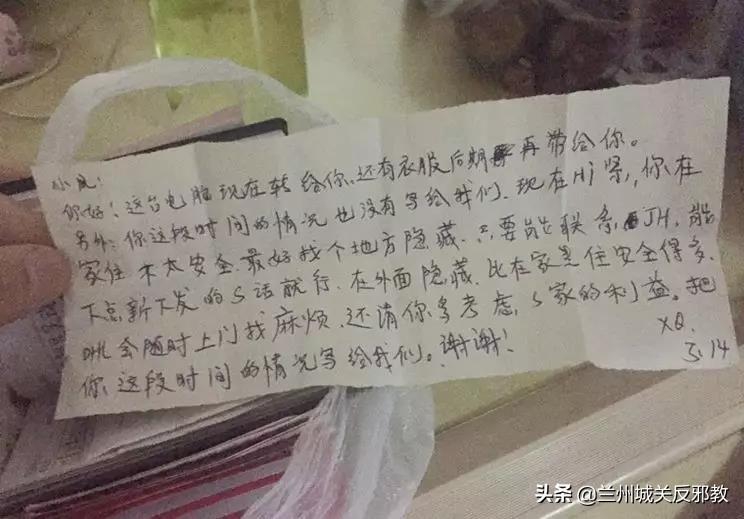 小凤:
你好!这台电脑现在转给你、还有衣服后期再带给你。
另外:你这段时间的情况也没有写给我们、现在Hj紧,你在
家住不太安全、最好找个地方隐藏、只要能联系JH、能
下点新下发的S话就行、在外面隐藏、比在家里住安全得多、
会随时上门找麻烦、还请你多考虑,S家的利益。把
你这段时间的情况写给我们。谢谢!
XQ.
3.14
头条 @兰州城关反邪教